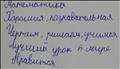 Математика
Хорошая, познавательная
Чертим, решаем, учимся
Лучший урок в мире
Нравится